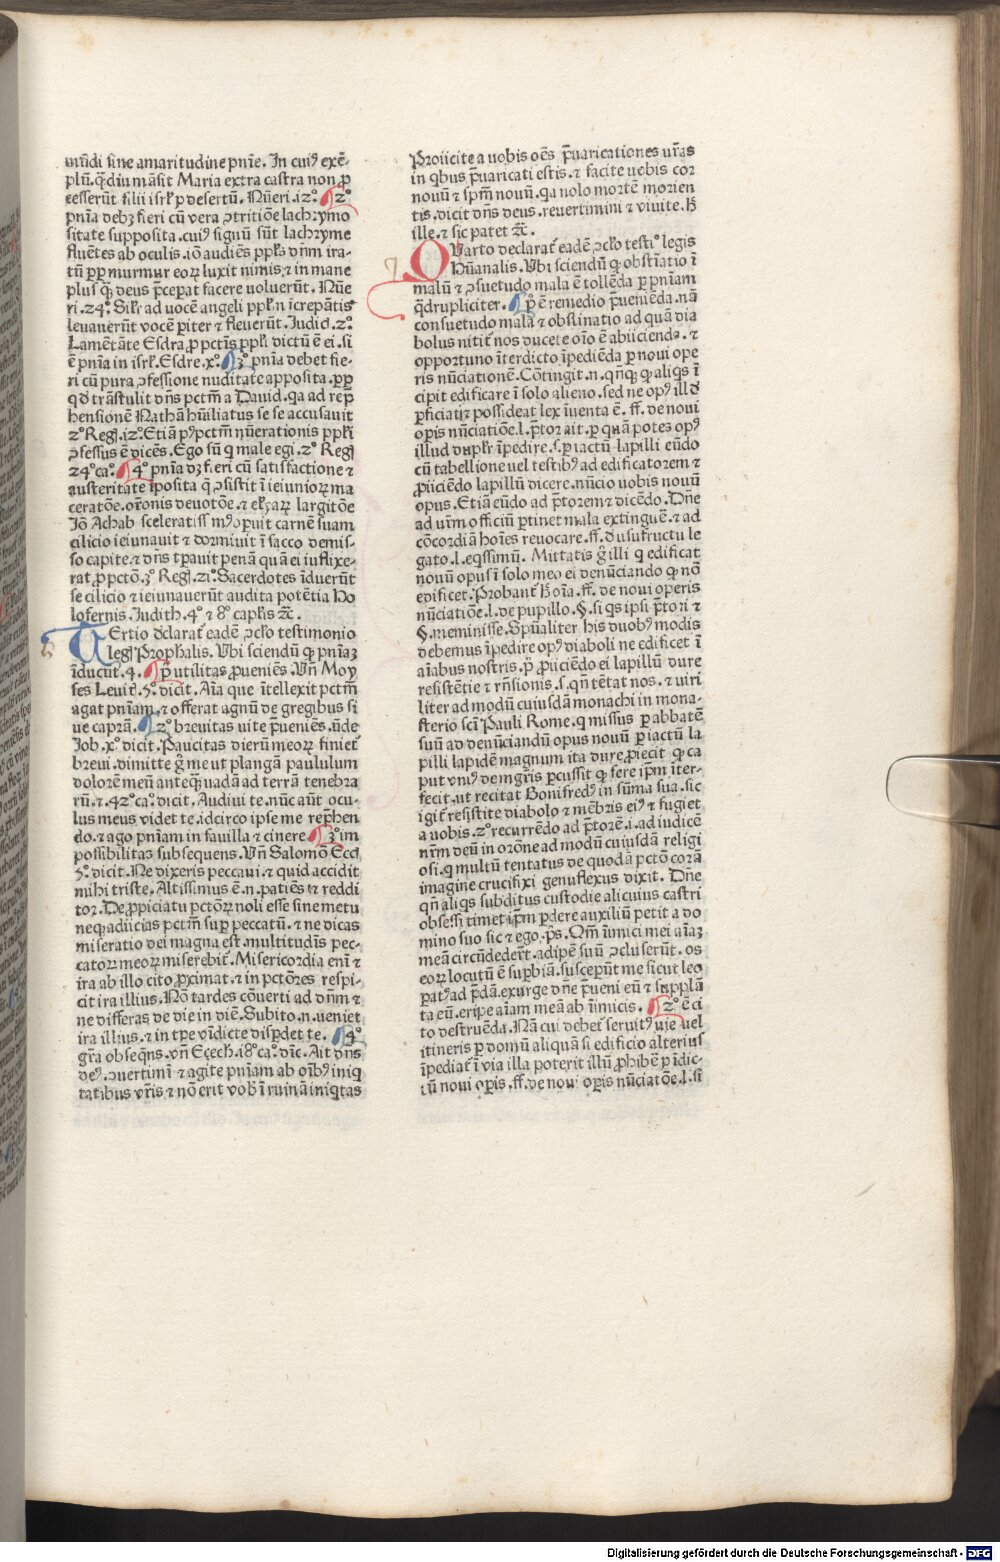 mūdi sine amaritudine pnīe. In cuiꝰ exē-
plū. qᷓdiu māsit Maria extra castra non ꝓ
cesserūt filii isrl̕ p desertū. Nūeri. iz°. ¶ z°
pnīa debꝫ fieri cū vera ꝯtritiōe lachrymo
sitate supposita. cuiꝰ signū sūt lachryme
fluētes ab oculis. iō audiēs ppl̕s dn̄m ira-
tū ꝑp murmur eoꝝ luxit nimis. ⁊ in mane
plus qᷓꝫ deus p̄ceꝑat facere voluerūt. Nūe
ri. z4°. Sil̕r ad uocē angeli ppl̕m īcrepātis
leuauerūt vocē ꝑiter ⁊ fleuerūt. Iudic̄. z°.
Lamētāte Esdra ꝓ pctīs ppl̕i dictū ē ei. si
ē pnīa in isrl̕. Esdre. x°. ¶ 3° pnīa debet fie-
ri cū pura ꝯfessione nuditate apposita. ꝑp
qḋ trāstulit dn̄s pctm̄ a Dauid. qa ad rep̄
hensionē Nathā hūiliatus se se accusauit
z° Regꝭ. iz°. Etiā pꝰ pctm̄ nūerationis ppl̕i
ꝯfessus ē dicēs. Ego sū q male egi. z° Regꝭ
z4° ca°. ¶ 4° pnīa dꝫ fieri cū satisfactione ⁊
austeritate īposita q̄ ꝯsistit ī ieiunioꝝ ma
ceratōe. or̄onis deuotōe. ⁊ el̕iaꝝ largitōe
Iō Achab sceleratiss mꝰ opuit carnē suam
cilicio ieiunauit ⁊ dormiuit ī sacco demis-
so capite. ⁊ dn̄s tꝑauit penā quā ei iuflixe-
rat ꝓ pctō. 3° Regꝭ. zi°. Sacerdotes īduerūt
se cilicio ⁊ ieiunauerūt audita potētia Ho
lofernis. Iudith. 4° ⁊ 8° capl̕is ⁊c̄.
TErtio dclarat᷑ eadē ꝯclo testimonio
legꝭ Prophalis. Vbi sciendū qꝫ pnīaꝫ
īducūt. 4. ¶ p° utilitas ꝓueniēs. Vn̄ Moy
ses Leuit̄. 5°. dicit. Aīa que ītellexit pctm̄
agat pnīam. ⁊ offerat agnū de gregibus si
ue caprā. ¶ z° breuitas uite p̄ueniēs. ūde
Iob. x° dicit. Paucitas dierū meoꝝ finiet᷑
breui. dimitte g̊ me ut plangā paululum
dolorē meū anteqᷓꝫ uadā ad terrā tenebra
rū. ⁊. 4z° ca°. dicit. Audiui te. nūc aūt ocu-
lus meus videt te. idcirco ipse me rep̄hen
do. ⁊ ago pnīam in fauilla ⁊ cinere ¶ 3° im
possibilitas subsequens. Vn̄ Salomō Eccī
5°. dicit. Ne dixeris peccaui. ⁊ quid accidit
mihi triste. Altissimus ē. n. patiēs ⁊ reddi
tor. De ꝓpiciatu pctōꝝ noli esse sine metu
neqꝫ adiicias pctm̄ suꝑ peccatū. ⁊ ne dicas
miseratio dei magna est. multitudīs pec-
catoꝝ meoꝝ miserebit᷑. Misericordia enī ⁊
ira ab illo cito ꝓximat. ⁊ in pctōres respi-
cit ira illius. Nō tardes cōuerti ad dn̄m ⁊
ne differas de die in diē. Subito. n. ueniet
ira illius. ⁊ in tꝑe vīdicte disꝑdet te. ¶ 4°
gr̄a obseqn̄s. vn̄ Eꝫech. i8° ca°. dīc. Ait dn̄s
deꝰ. ꝯuertimī ⁊ agite pnīam ab oībꝰ iniq
tatibus vr̄is ⁊ nō erit vob̄ ī ruinā iniqtas
Proiicite a uobis oēs p̄uaricationes vr̄as
in qbus p̄uaricati estis. ⁊ facite uobis cor
nouū ⁊ spm̄ nouū. qa nolo mortē morien
tis. dicit dn̄s deus. reuertimini ⁊ viuite. H̄
ille. ⁊ sic patet ⁊c̄.
QVarto declarat᷑ eadē ꝯclo testi° legis
Hūanalis. Vbi sciendū qꝫ obstīatio ī
malū ⁊ ꝯsuetudo mala ē tollēda ꝑ pnīam
qᷓdrupliciter. ¶ p° ē remedio p̄ueniēda. nā
consuetudo mala ⁊ obstinatio ad quā dia
bolus nitit᷑ nos ducere oīo ē abiicienda. ⁊
opportuno īterdicto īpediēda ꝑ noui ope
ris nūciationē. Cōtingit. n. qn̄qꝫ qꝫ aliqs ī
cipit edificare ī solo alieno. sed ne opꝰ illḋ
ꝑficiat᷑ possideat lex īuenta ē. ff. de noui
oꝑis nūciatiōe. l. p̄tor ait. ꝑ quā potes opꝰ
illud dupl̕r īpedire. s. ꝑ iactū lapilli eūdo
cū tabellione uel testibꝰ ad edificatorem ⁊
ꝓiiciēdo lapillū dicere. nūcio uobis nouū
opus. Etiā eūdo ad p̄torem ⁊ dicēdo. Dn̄e
ad vr̄m officiū ꝑtinet mala extinguē. ⁊ ad
cōcordiā hoīes reuocare. ff. d usufructu le
gato. l. eqssimū. Mittatis g̊ illi q edificat
nouū opus ī solo meo ei denūciando qꝫ nō
edificet. Probant᷑ H̄ oīa. ff. de noui operis
nūciatiōe. l. de pupillo. §. si qs ipsi p̄tori ⁊
§. meminisse. Spūaliter his duobꝰ modis
debemus īpedire opꝰ diaboli ne edificet ī
aīabus nostris. p° ꝓiiciēdo ei lapillū dure
resistētie ⁊ rn̄sionis. s. qn̄ tētat nos. ⁊ uiri
liter ad modū cuiusdā monachi in mona-
sterio scī Pauli Rome. q missus ꝑ abbatē
suū ad denūciandū opus nouū ꝑ iactū la
pilli lapidē magnum ita dure ꝓiecit qꝫ ca
put vniꝰ de mgr̄is ꝑcussit qꝫ fere ipm̄ īter-
fecit. ut recitat Bonifredꝰ in sūma sua. sic
igit᷑ resistite diabolo ⁊ mēbris eiꝰ ⁊ fugiet
a uobis. z° recurrēdo ad p̄torē. i. ad iudicē
nr̄m deū in or̄one ad modū cuiusdā religi
osi. q multū tentatus de quodā pctō corā
imagine crucifixi genuflexus dixit. Dn̄e
qn̄ aliqs subditus custodie alicuius castri
obsessi timet ipm̄ ꝑdere auxiliū petit a do
mino suo sic ⁊ ego. p̄s. Qm̄ īimici mei aīaꝫ
meā circūdedert᷑. adipē suū ꝯcluserūt. os
eoꝝ locutū ē suꝑbiā. susceꝑūt me sicut leo
ꝑatꝰ ad p̄dā. exurge dn̄e p̄ueni eū ⁊ supplā
ta eū. eripe aīam meā ab īimicis. ¶ z° ē ci
to destruēda. Nā cui debet᷑ seruitꝰ uie uel
itineris ꝑ domū aliquā si edificio alterius
īpediat᷑ ī via illa poterit illū ꝓhibē ꝑ īdic-
tū noui oꝑis. ff. de noui oꝑis nūciatōe. l. si
Digitalisierung gefördert durch die Deutsche Forschungsgemeinschaft - DFG